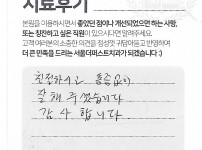 치료후기
본원을 이용하시면서 좋았던 점이나 개선되었으면 하는 사항,
또는 칭찬하고 싶은 직원이 있으시다면 알려주세요.
고객 여러분의 소중한 의견을 정성껏 귀담아듣고 반영하여
더 큰 만족을 드리는 서울더퍼스트치과가 되겠습니다 :)
친절하시고 통증 없이
잘 해 주셨습니다
감사 합니다